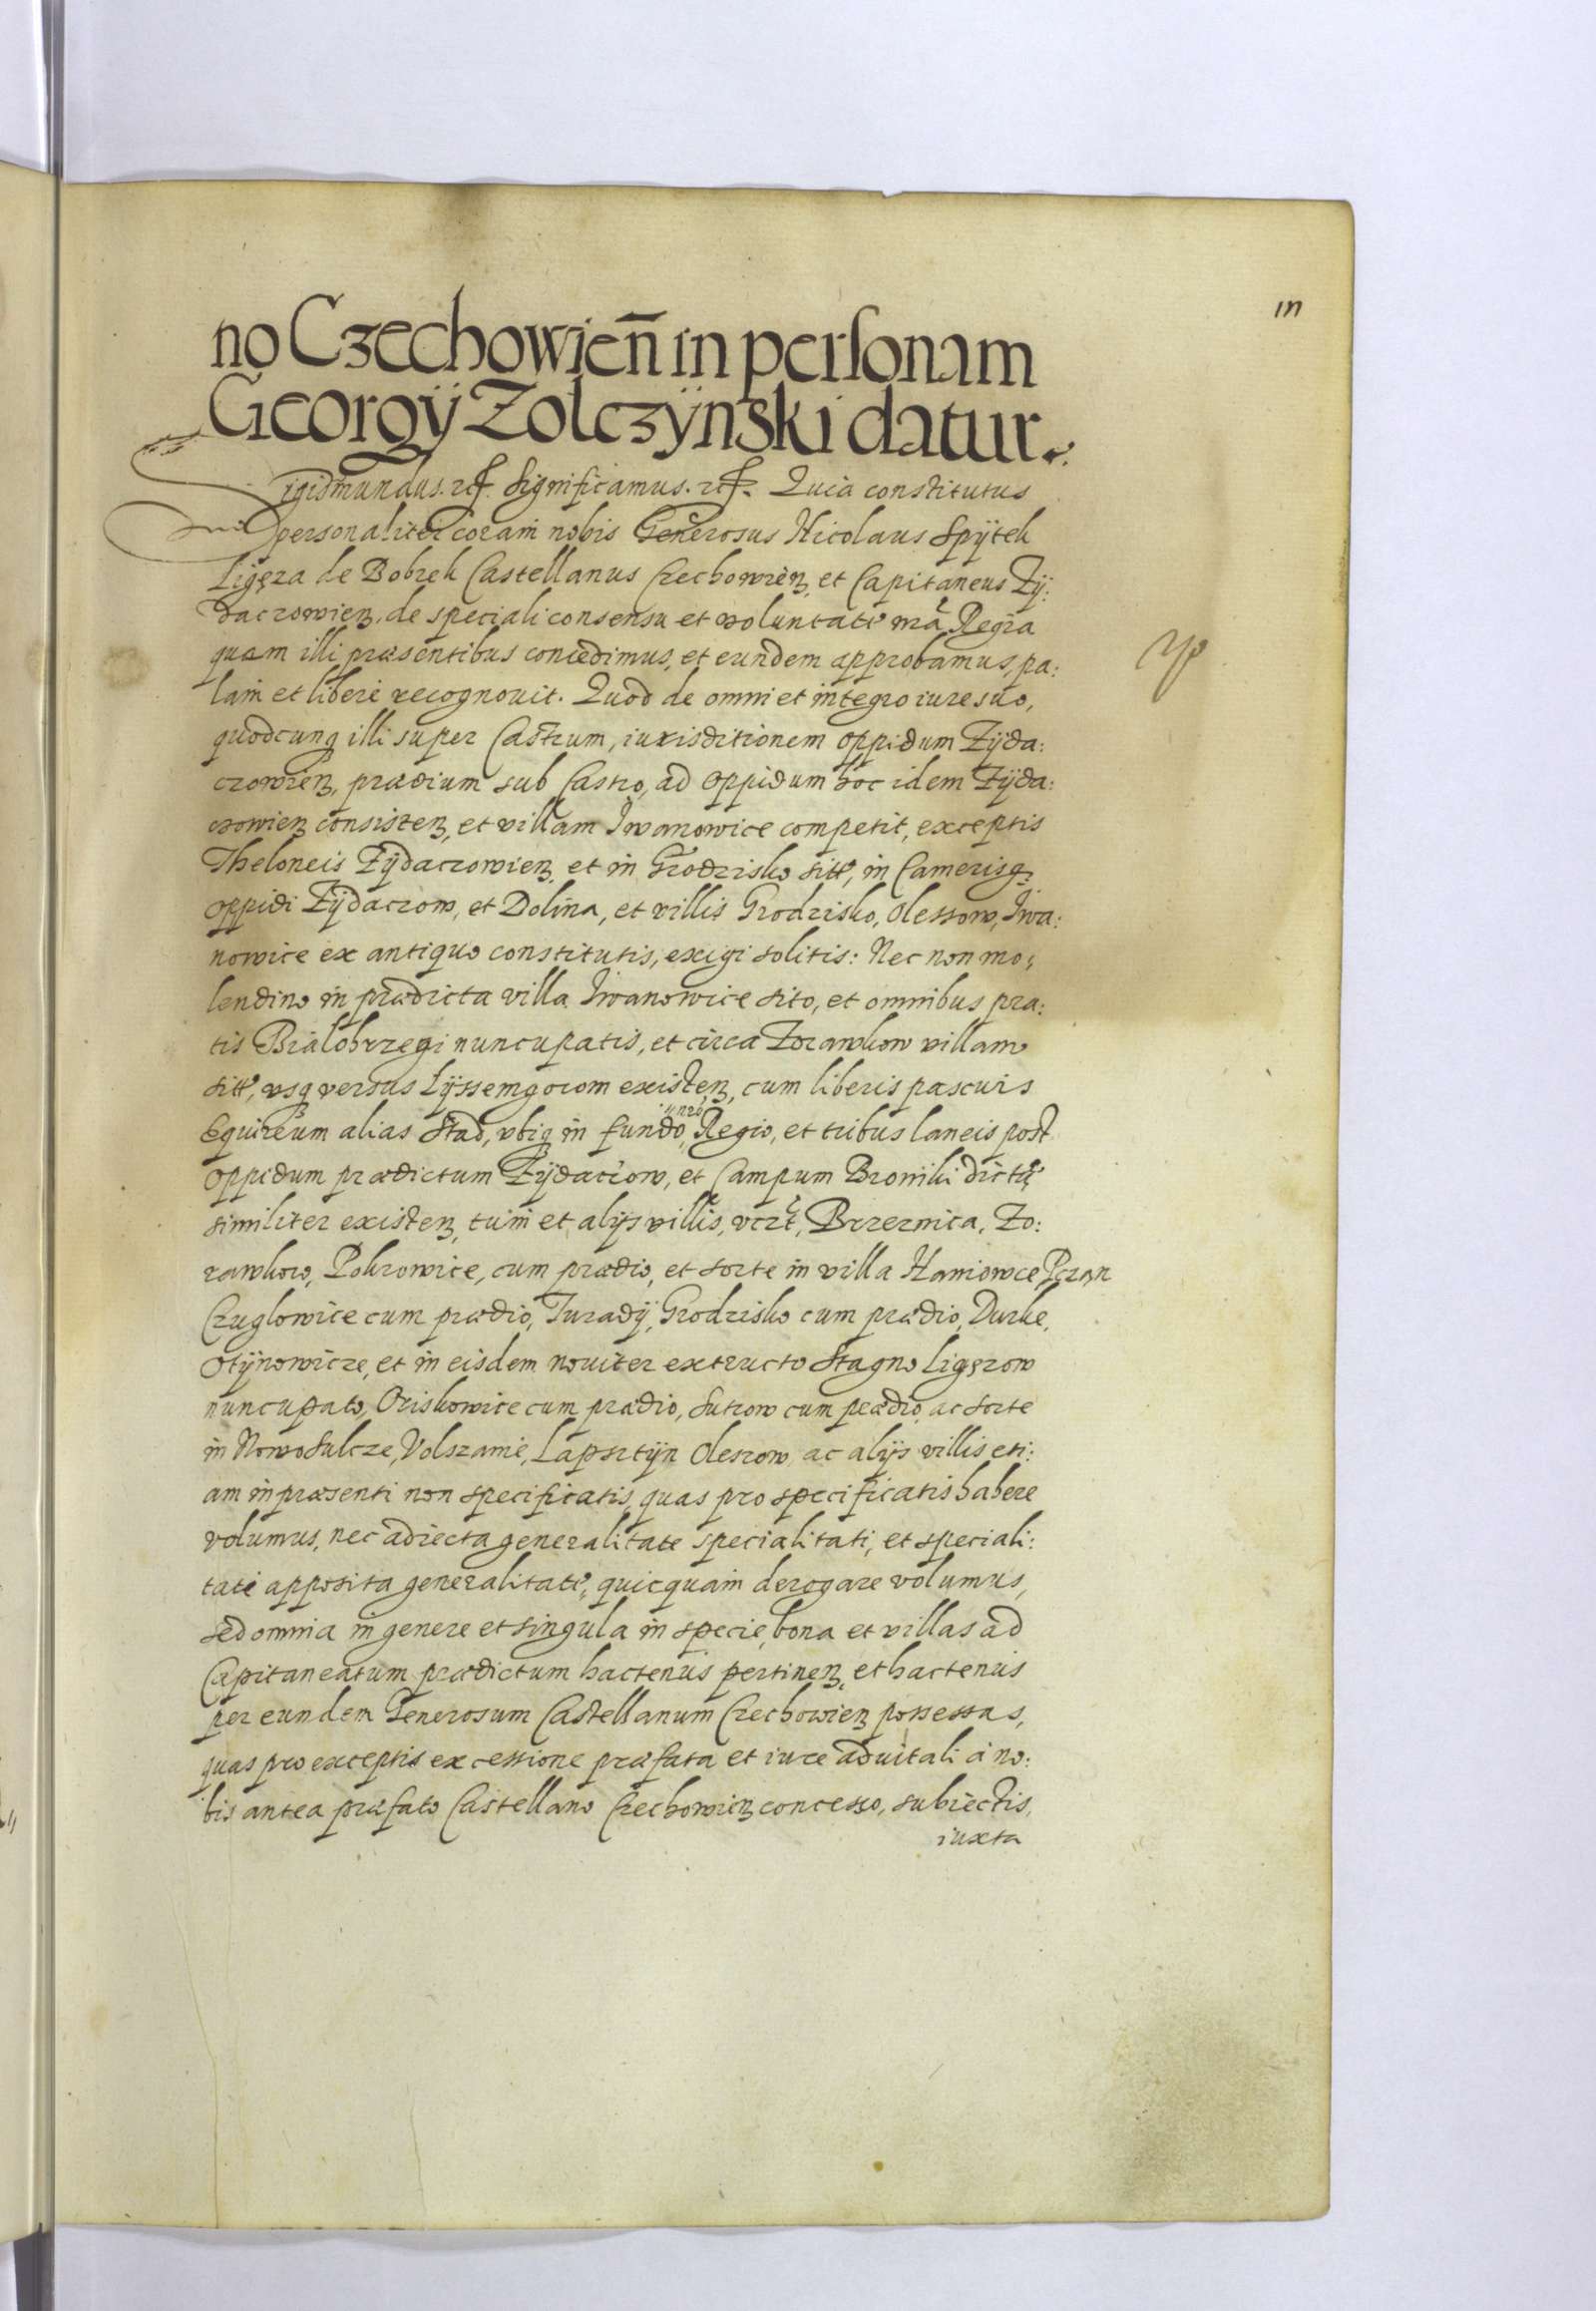 111
no Czechowień in personam
Georgÿ Zolczÿnski datur.
Sigismundus. etc. Significamus. etc. Quia constitutus
personaliter coram nobis Generosus Nicolaus Spÿtek
Ligęza de Bobrek Castellanus Czechowień, et Capitaneus Zÿ:
daczowień. de speciali consensu et voluntate nrã Regia
quam illi præsentibus concedimus, et eundem approbamus, pa:
lam et liberè recognouit. Quod de omni et integro iure suo,
quodcunq illi super Castrum, iurisditionem oppidum Zÿda:
czowień, prædium sub Castro, ad oppidum hoc idem Zÿda:
czowień consisteñ, et villam Iwanowice competit, exceptis
Theloneis Zÿdaczowień et in Grodzisko sitt, in Camerisq
oppidi Zÿdaczow, et Dolina, et villis Grodzisko, Olessow, Iwa:
nowice ex antiquo constitutis, exigi solitis: Nec non mo:
lendino in prædicta villa Iwanowice sito, et omnibus pra:
tis Bialobrzegi nuncupatis, et circa Zorawkow villam
sitt, vsq versus Lÿssemgorom existeñ, cum liberis pascuis
Equireum alias Stad, vbiq in fundo nro Regio, et tribus laneis post
oppidum prædictum Zÿdaczow, et Campum Broniki dictũ
similiter existeñ, tum et alijs villis, vczt, Brzeznica, Zo:
rawkow, Pokrowice, cum prædio, et sorte in villa Haniowce,
Czuglowice cum prædio, Turadÿ, Grodzisko cum prædio, Durke,
Otÿnowicze, et in eisdem nouiter extructo Stagno Ligęzow
nuncupato, Oriskowice cum prædio, Sutrow cum prædio ac sorte
in Nowosulcze, Volszanie, Lapsztÿn Oleszow, ac alijs villis eti:
am in præsenti non specificatis, quas pro specificatis habere
volumus, nec adiecta generalitate specialitati, et speciali:
tate apposita generalitati, quicquam derogare volumus,
sed omnia in genere et singula in specie, bona et villas ad
Capitaneatum prædictum hactenus pertineñ, et hactenus
per eundem Generosum Castellanum Czechowień possessas,
quas pro exceptis ex cessione præfata et iure aduitali à no:
bis antea præfato Castellano Czechowień concesso, subiectis,
iuxta